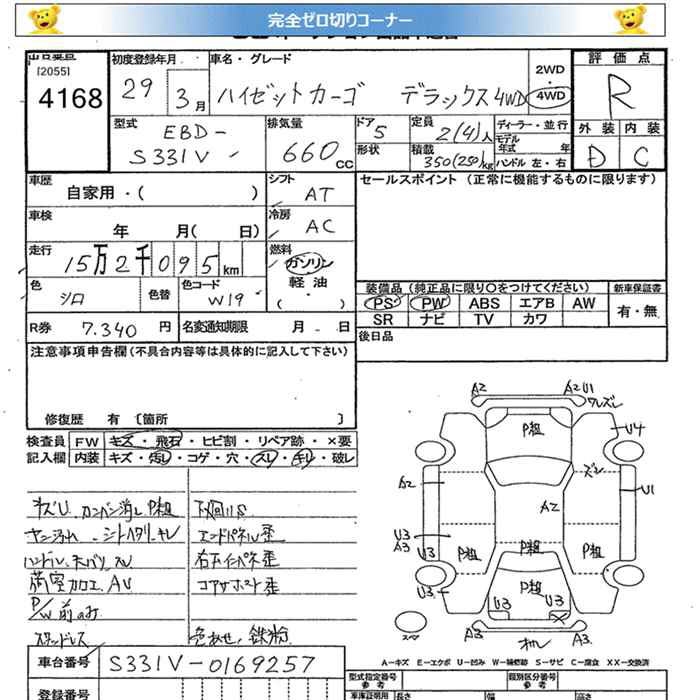 完全ゼロ切りコーナー
出品番号 初度登録年月 車名・グレード 2WD 評価点
[2055]
4168 29 3月 ハイゼットカーゴ デラックス4WD 4WD R
型式 排気量 ドア 定員 ディーラー・並行 外装 内装
EBD- 5 2(4)人 モデル年式 年
S331V 660cc 形状 積載 350(250)kg ハンドル 左・右 D C
車歴 シフト セールスポイント (正常に機能するものに限ります)
自家用・( ) AT
車検 冷房
年 月( 日) AC
走行 燃料
15万2千095km ガソリン
色 色替 色コード 軽油 装備品 (純正品に限り○をつけてください) 新車保証書
シロ W19 ・( ) PS PW ABS エアB AW 有・無
R券 7.340円 名変通知期限 月 日 SR ナビ TV カワ
注意事項申告欄(不具合内容等は具体的に記入して下さい) 後日品
修復歴 有 〔箇所 〕
検査員 FW キズ・飛石・ヒビ割・リペア跡・×要
記入欄 内装 キズ・汚レ・コゲ・穴・スレ・キレ・破レ
キズU カンバン消し P粗 下回りS
エンドパネル歪
右下インパネ歪
荷室加工、AU コアサポート歪
P/W前のみ
スタッドレス 色あせ、鉄粉
A2 A2 U1
ワレズレ
P粗 U4
A2 ズレ U1
A2
U3 A3 U3 P粗 P粗 P粗
P粗
U3 U3 U3
スペア A3 オレ A3
A-キズ E-エクボ U-凹み W-補修跡 S-サビ C-腐食 XX-交換済
車台番号 S331V-0169257
登録番号 型式指定番号 参考 類別区分番号 参考
車庫証明用 長さ 幅 高さ